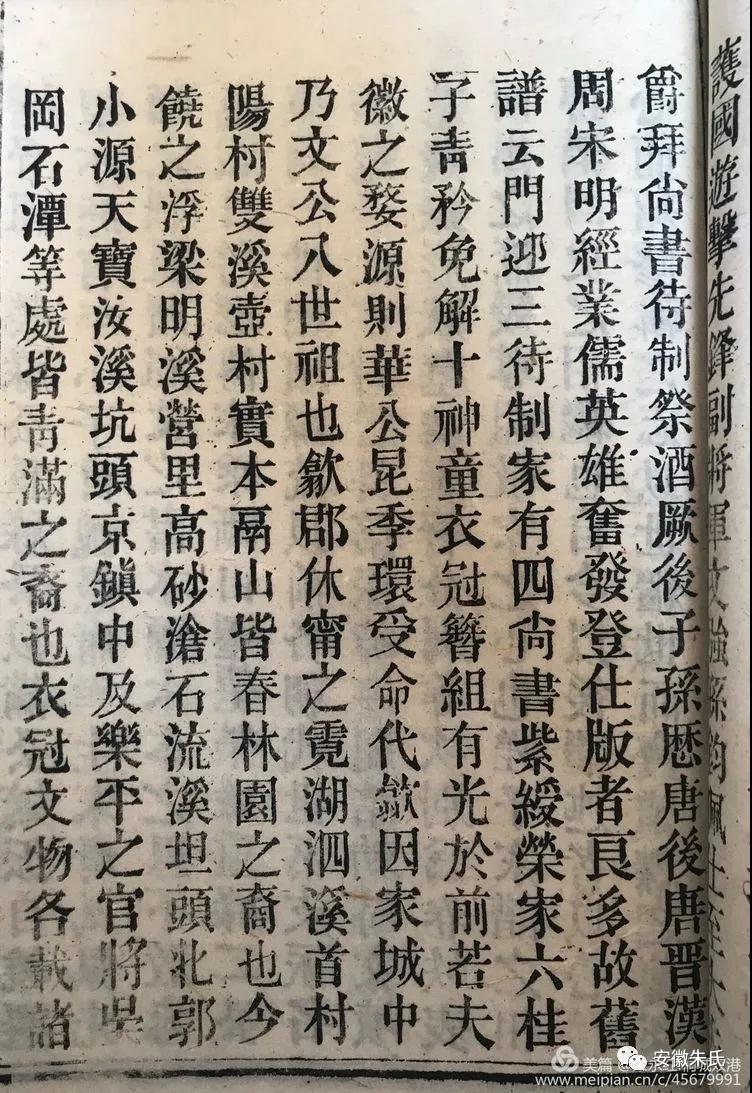 護國遊擊先鋒副將軍文強孫鈞佩士至
爵拜尙書待制祭酒厥後子孫歷唐後唐晉漢
周宋明經業儒英雄奮發登仕版者良多故舊
譜云門迎三待制家有四尙書紫綬榮家六桂
子靑矜免解十神童衣冠簪組有光於前若夫
徽之婺源則華公昆季環受命代歙因家城中
乃文公八世祖也歙郡休甯之霓湖泗溪首村
陽村雙溪壺村實本鬲山皆春林園之裔也今
饒之浮梁明溪營里高砂滄石流溪坦頭北郭
小源天寶汝溪坑頭京鎭中及樂平之官將吳
岡石潭等處皆靑滿之裔也衣冠文物各載諸
美篇
安徽朱氏
www.meipian.cn/c/45679991